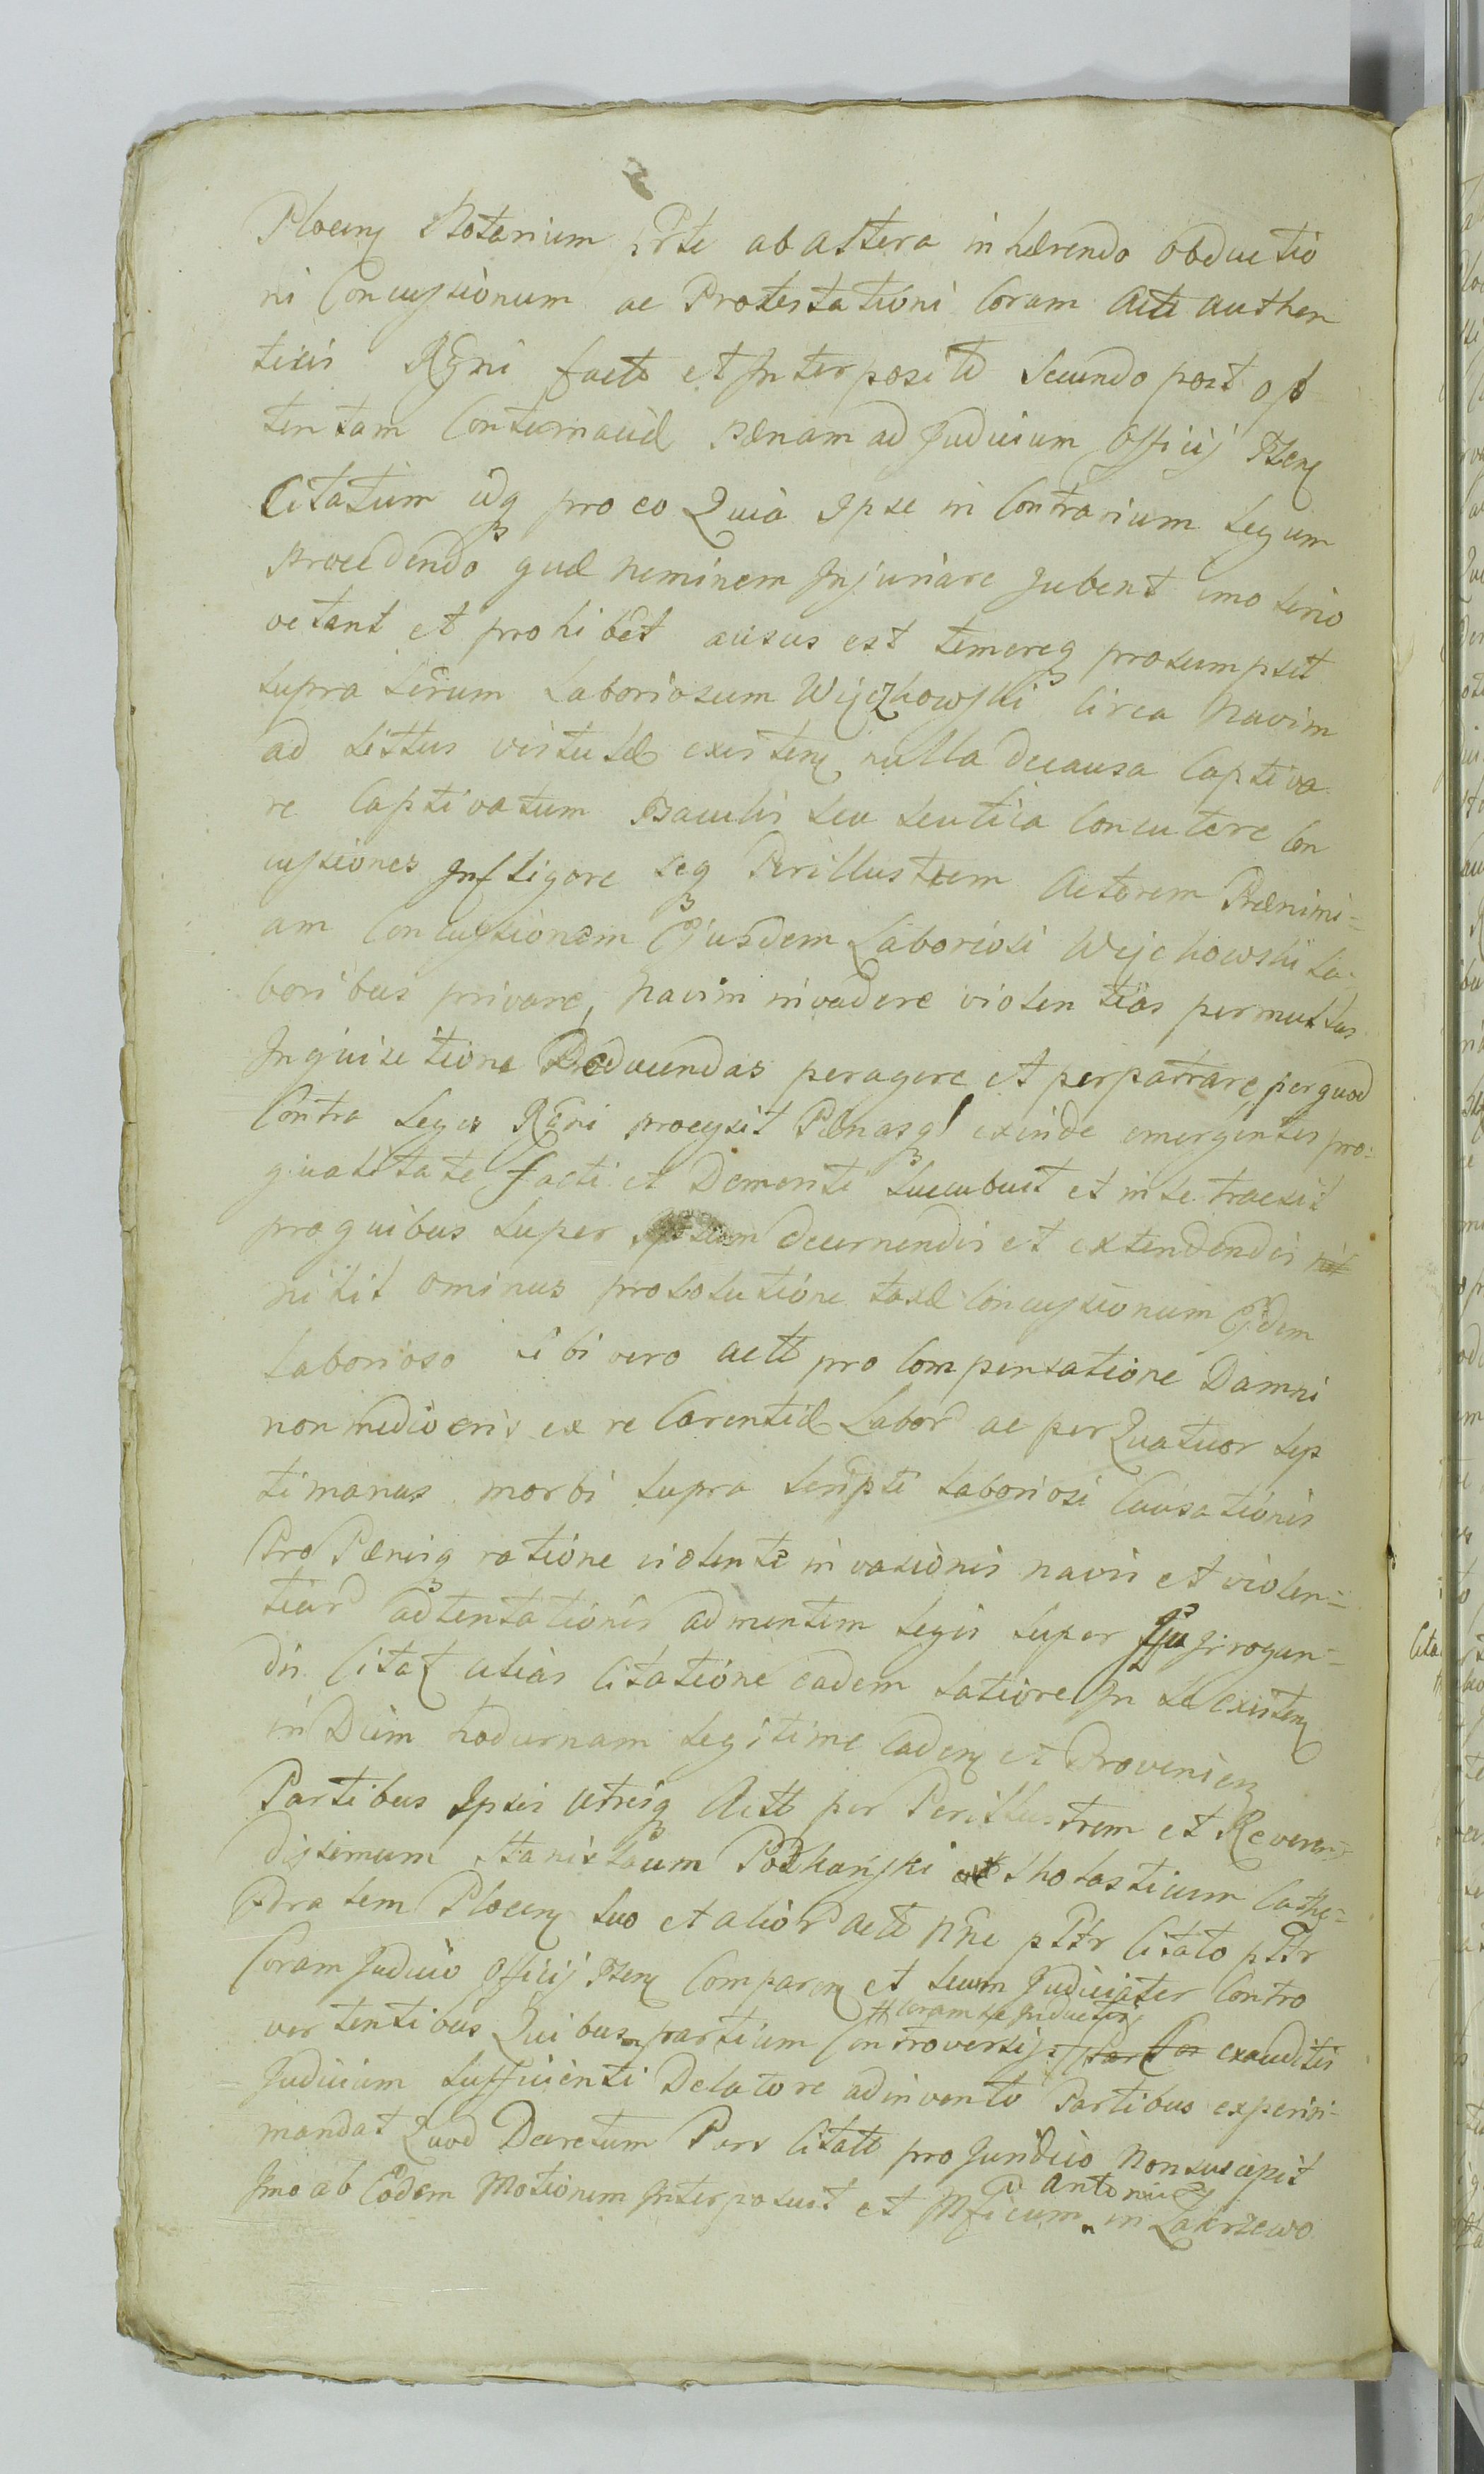 Plocen Notarium Pte ab altera inhærendo obductio
ni Concussionum ac Protestationi Coram Actis authen
ticis Rgni factæ et Interpositæ Secundo post ob
tentam Contumaciæ Pænam ad Judicium Officij Psen
Citatum idq pro eo Quia Ipse in Contrarium Legum
procedendo quæ neminem Injuriare Jubent imo serio
vetant et prohibet ausus est temereq præsumpsit
supra scrum Laboriosum Wijczkowski circa Navim
ad Littus vistulæ existen nulla de causa Captiva
re Captivatum Baculis seu scutica Concutere Con
cussiones Infligere seq Perillustrem Actorem Prænimi=
am Concussionem Ejusdem Laboriosi Wijchowski La-
boribus privare, navim invadere violentias permultas
Inquisitione Deducendas peragere et perpatrare per quod
Contra Leges Rgni processit Pænasq exinde emergentes pro
qualitate facti et Demeriti succubuit et in se traxit
pro quibus super Ipsum decernendis et extendendis
nihil ominus pro solutione taxæ Concussionum Ejdem
Laborioso sibi vero Actti pro Compensatione Damni
non mediocris ex re Carentiæ Labor ac per Quatuor sep
timanas morbi supra scripti Laboriosi Causationis
Pro Pænisq ratione violenti invasionis navis et violen=
tiar adtentationis ad mentem Legis super Irrogan=
dis Citat alias Citatione eadem Latiore In se existen
in Diem hodiernam Legitime Caden et Provenien
Partibus Ipsis utrisq Actti per Perillustrem et Reveren=
dissimum Stanislaum Poźkański Sholasticum Cathe=
dralem Plocen suo et alior actti nne psttr Citato psttr
Coram Judicio Officij Psen Comparen et secum Judicialiter Contro
vertentibus Quibus partium Controversijs coram se Inductis exauditis
Judicium sufficienti Delatore adinvento Partibus experiri=
mandat Quod Decretum Pars Citatti pro Juridico non suscepit
Imo ab Eodem Motionem Interposuit et Mficum Antonium in Zakrzewo